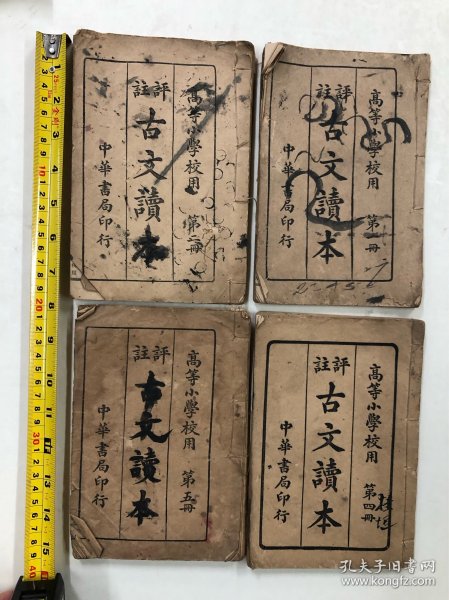 高等小學校用 第二冊
評註
古文讀本
中華書局印行
高等小學校用 第一冊
評註
古文讀本
中華書局印行
高等小學校用 第五冊
評註
古文讀本
中華書局印行
高等小學校用 第四冊
評註
古文讀本
中華書局印行
孔夫子旧书网
www.kongfz.com